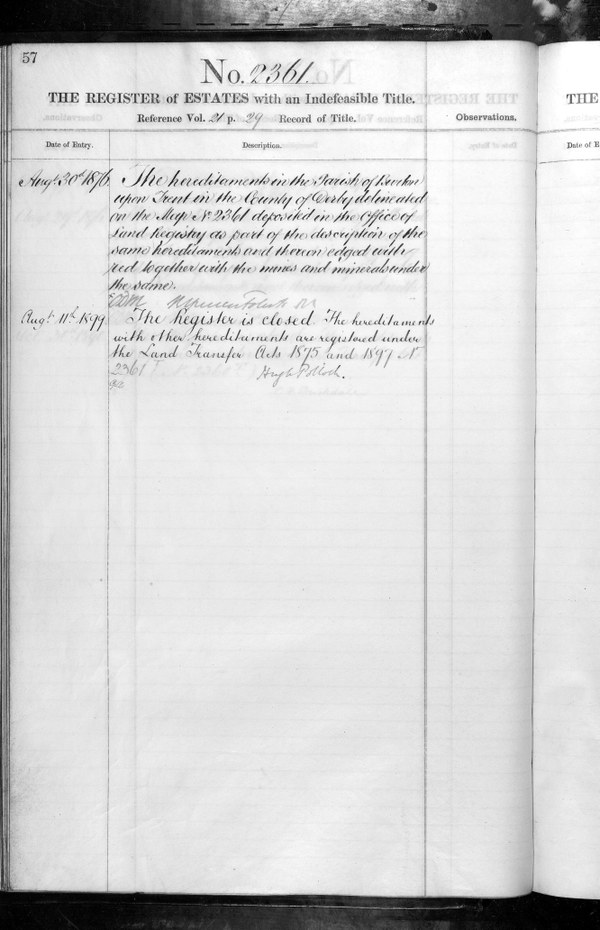 57
No. 2361.
THE REGISTER of ESTATES with an Indefeasible Title.
Reference Vol. 21 p. 29 Record of Title. Observations.
Date of Entry. Description.
Augt. 30th 1876. The hereditaments in the Parish of Burton
upon Trent in the County of Derby delineated
on the Map No 2361 deposited in the Office of
Land Registry as part of the description of the
same hereditaments and thereon edged with
red together with the mines and minerals under
the same.
Augt. 11th 1899. The Register is closed. The hereditaments
with other hereditaments are registered under
the Land Transfer Acts 1875 and 1897 No
2361
Hugh Pollock.
THE
Date of E